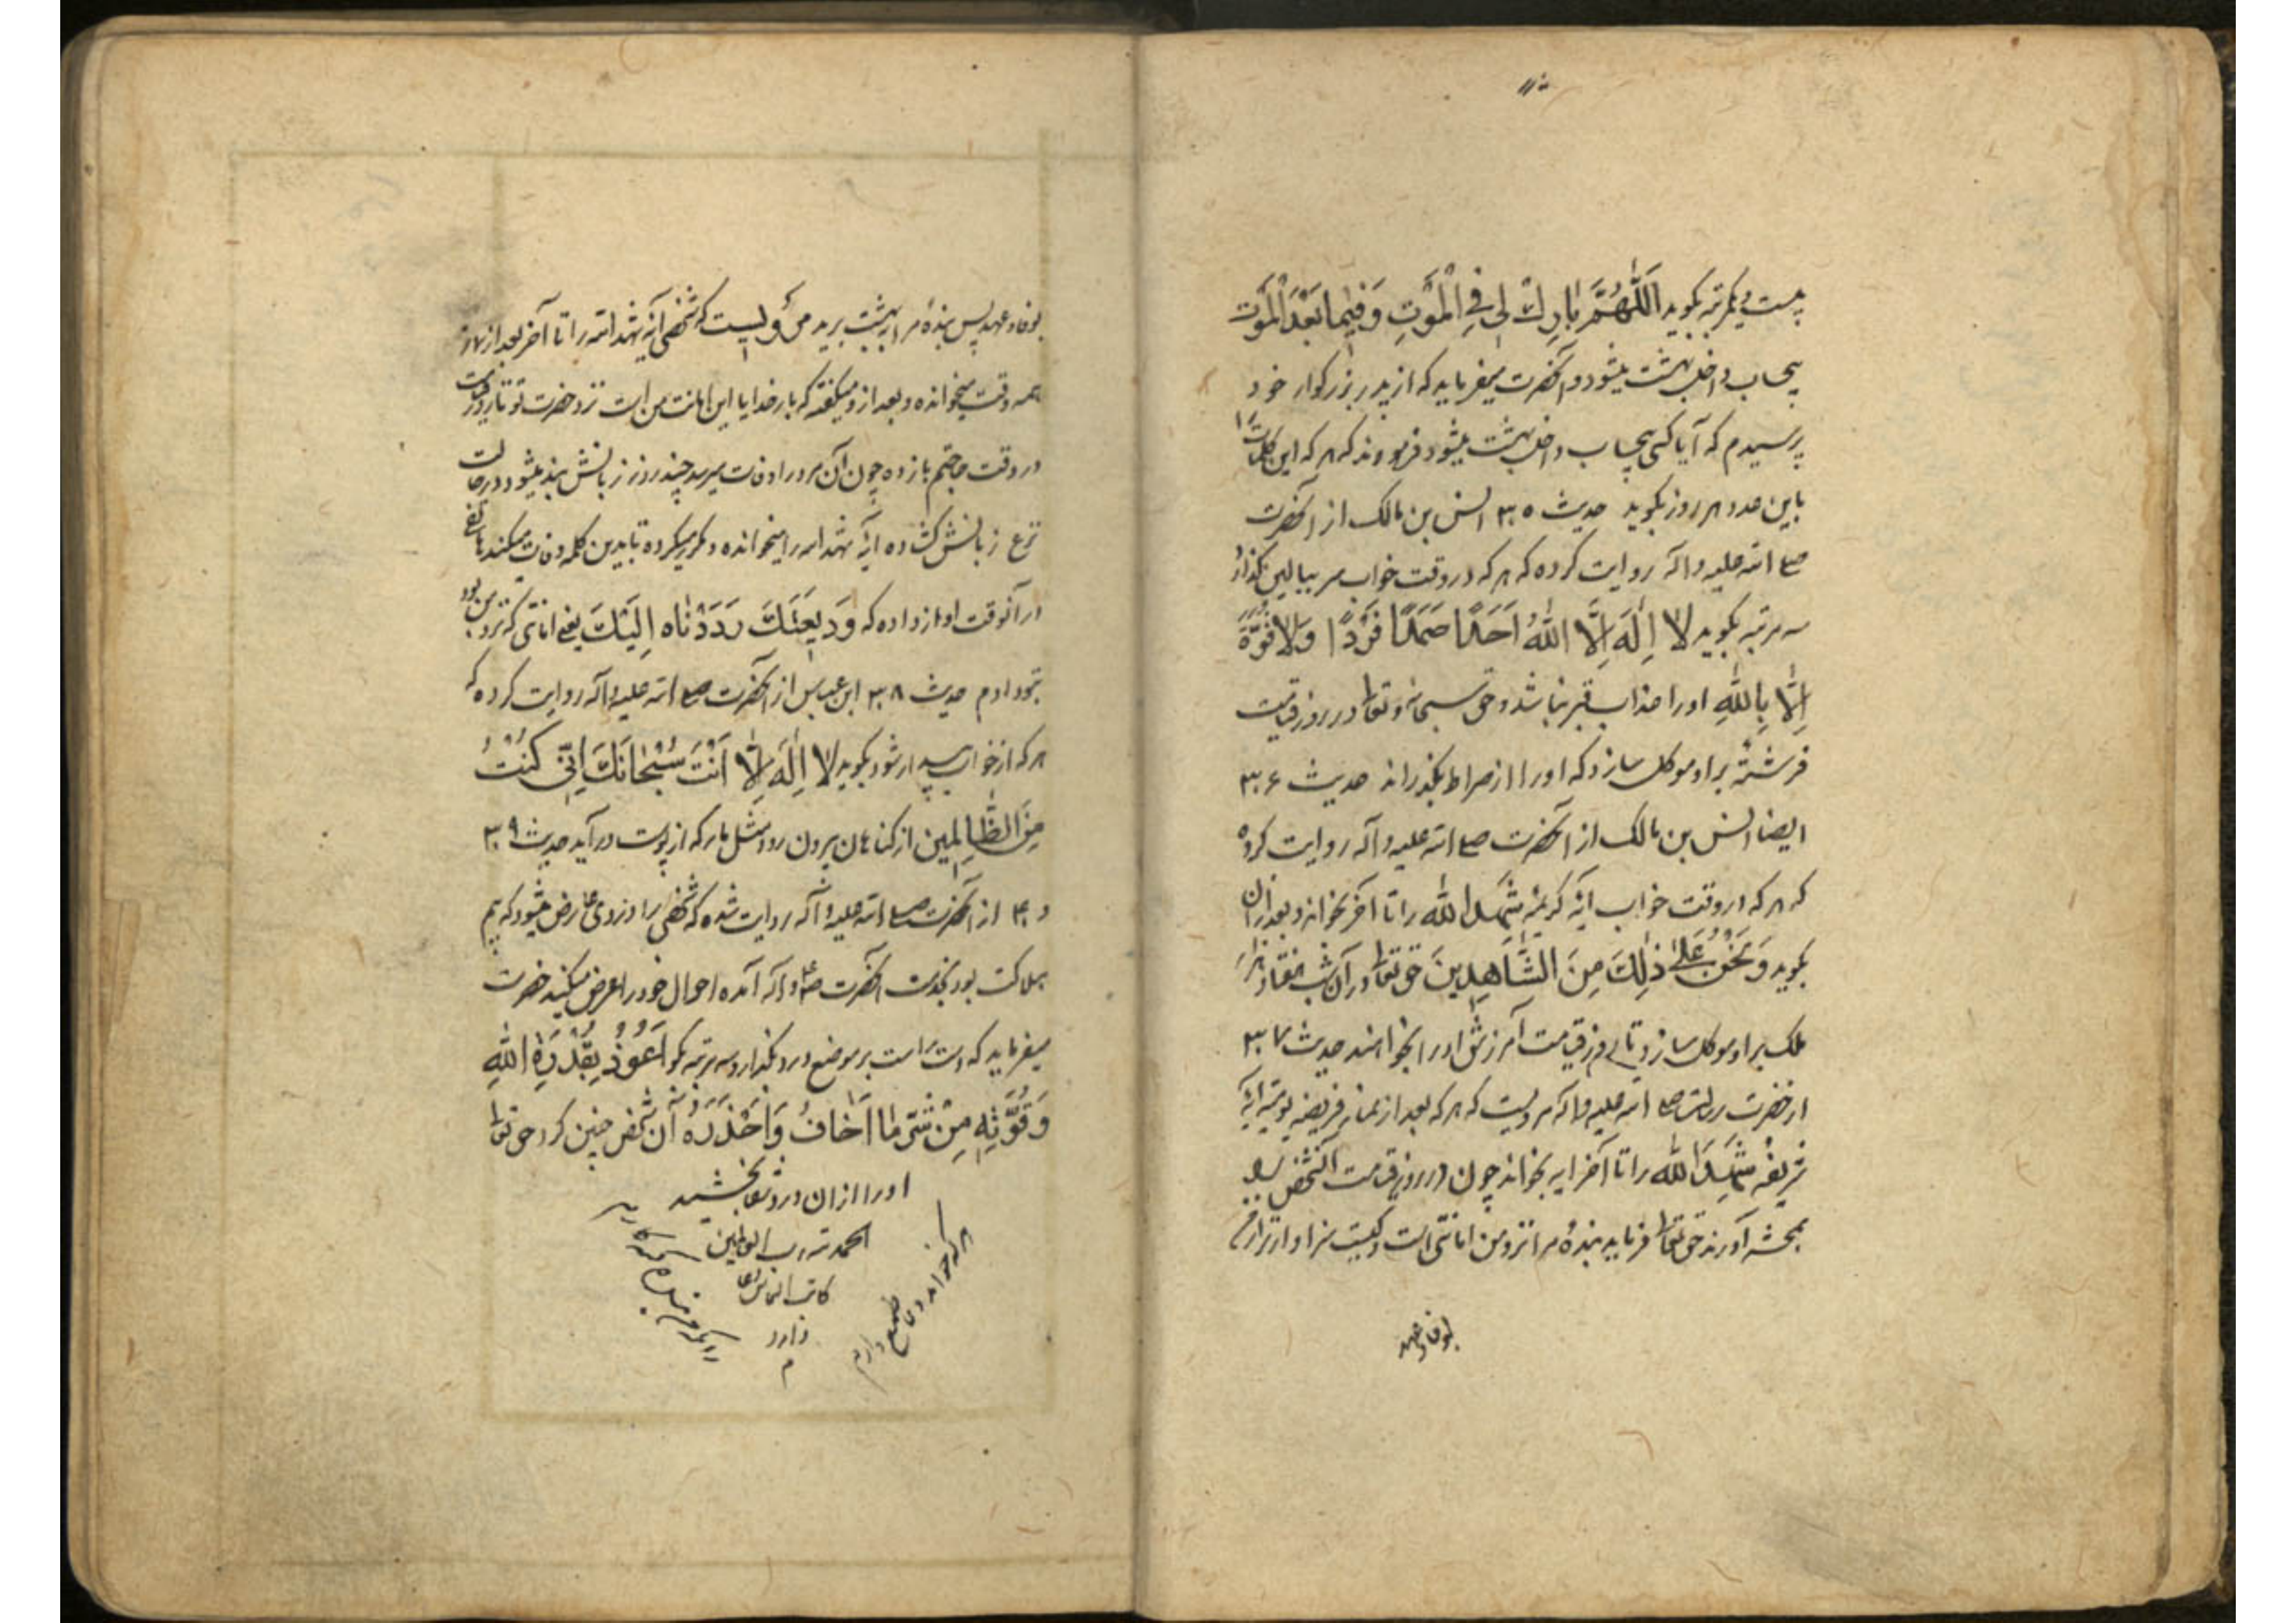 بیست و یکمرتبه بگوید اَللّهُمَّ بارِكْ لی فِی الْمَوْتِ وَ فیما بَعْدَ الْمَوْت
بیحساب داخل بهشت میشود و آنحضرت میفرماید که از پدر بزرگوار خود
پرسیدم که آیا کسی بیحساب داخل بهشت میشود فرمودند که هر که این کلمات را
باین عدد هر روز بگوید حدیث ۳۵ انس بن مالک از آنحضرت
صلی الله علیه و آله روایت کرده که هر که در وقت خواب سر ببالین گذارد
سه مرتبه بگوید لا اِلهَ اِلَّا اللهُ اَحَدًا صَمَدًا فَرْدًا وَلا قُوَّةَ
اِلَّا بِاللهِ او را عذاب قبر نباشد و حق سبحانه و تعالی در روز قیامت
فرشته براو موکل سازد که او را از صراط بگذراند حدیث ۳۶
ایضا انس بن مالک از آنحضرت صلی الله علیه و آله روایت کرده
که هر که در وقت خواب آیهٔ کریمهٔ شَهِدَ الله را تا آخر بخواند و بعد از آن
بگوید وَ نَحْنُ عَلی ذلِكَ مِنَ الشّاهِدینَ حق تعالی در آن شب هفتاد هزار
ملک براو موکل سازد تا روز قیامت آمرزش او را بخواهند حدیث ۳۷
از حضرت رسالت صلی الله علیه و آله مرویست که هر که بعد از نماز فریضهٔ یومیه آیهٔ
شریفهٔ شَهِدَ الله را تا آخر آیه بخواند چون در روز قیامت آنشخص را
بمحشر آورند حق تعالی فرماید بندهٔ مرا نزد من امانتی است و کیست سزاوارتر از من
بوفاء عهد
بوفاء عهد پس بندهٔ مرا ببهشت برید مرویست که شخصی آیهٔ شهد الله را تا آخر بعد از نماز
همه وقت میخوانده و بعد از و میگفته که بار خدایا این امانت من است نزد حضرت تو تا روز قیامت
در وقت حاجتم باز ده چون آن مرد را وفات میرسد چند روز زبانش بند میشود در حالت
نزع زبانش گشاده آیهٔ شهد الله را میخوانده و مکرر میکرده تا بدین کلمه وفات میکند هاتفی
در آنوقت آواز داده که وَدیعَتَكَ رَدَدْناه اِلَیْكَ یعنی امانتی که نزد من بود
بتو دادم حدیث ۳۸ ابن عباس از آنحضرت صلی الله علیه و آله روایت کرده که
هر که از خواب بیدار شود بگوید لا اِلهَ اِلّا اَنْتَ سُبْحانَكَ اِنّی کُنْتُ
مِنَ الظّالِمین از گناهان بیرون رود مثل مار که از پوست درآید حدیث ۳۹
و ۴۰ از آنحضرت صلی الله علیه و آله روایت شده که شخصی را دردی عارض میشود که بیم
هلاکت بود بخدمت آنحضرت ص و آله آمده احوال خود را عرض میکند حضرت
میفرماید که دست راست بر موضع درد بگذار و سه مرتبه بگو اَعُوذُ بِقُدْرَةِ اللهِ
وَ قُوَّتِهِ مِنْ شَرِّ ما اَخافُ وَ اَحْذَرُهُ آن شخص چنین کرد حق تعالی
او را از آن درد شفا بخشید
الحمد لله رب العالمین
کاتب التماس دعا
دارد
م
هر که خواند دعا طمع دارم